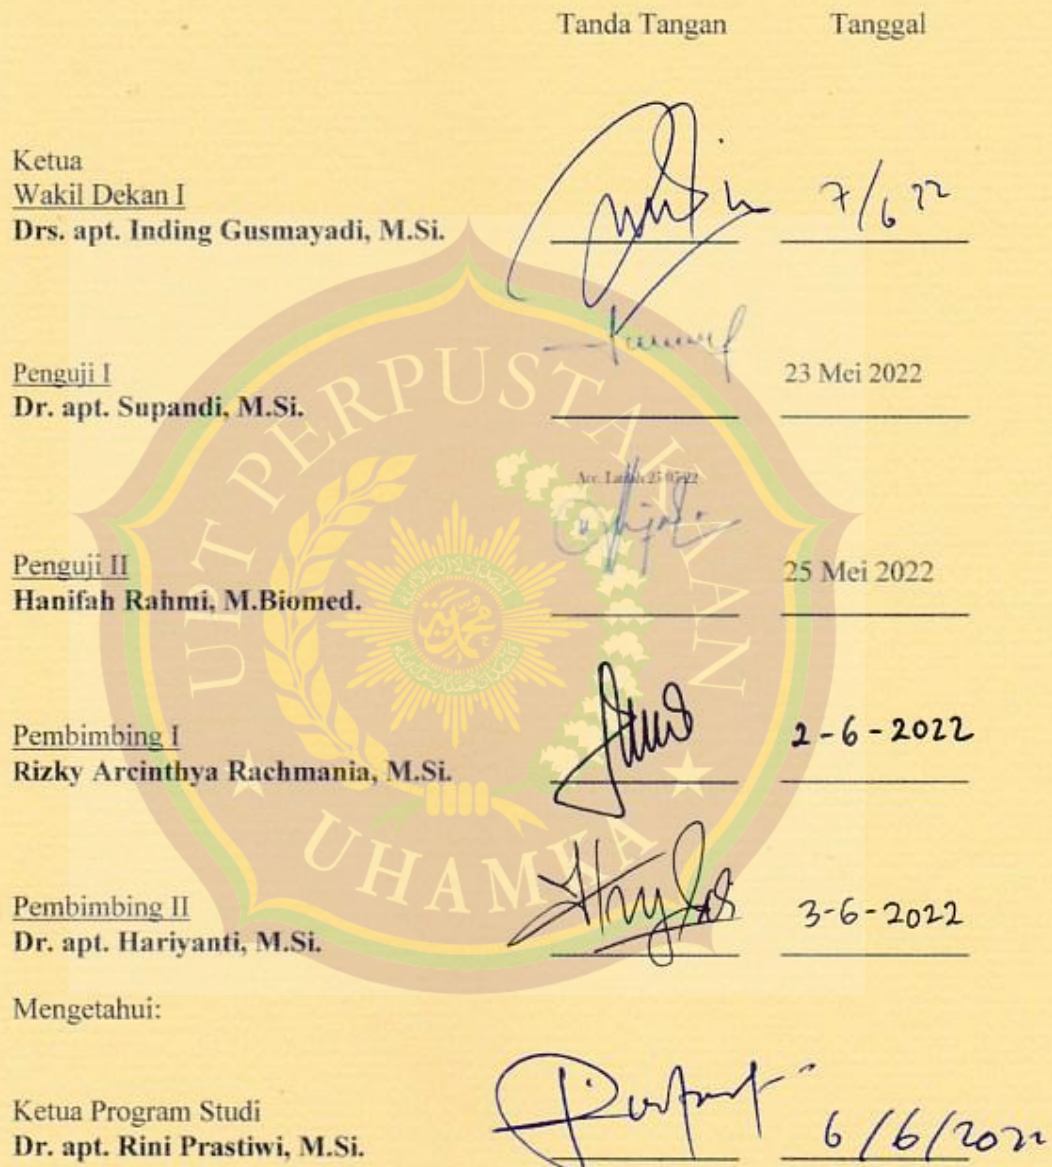 Tanda Tangan Tanggal
Ketua
Wakil Dekan I
Drs. apt. Inding Gusmayadi, M.Si.
7/6 22
Penguji I
Dr. apt. Supandi, M.Si.
23 Mei 2022
Penguji II
Hanifah Rahmi, M.Biomed.
25 Mei 2022
Pembimbing I
Rizky Arcinthya Rachmania, M.Si.
2-6-2022
Pembimbing II
Dr. apt. Hariyanti, M.Si.
3-6-2022
Mengetahui:
Ketua Program Studi
Dr. apt. Rini Prastiwi, M.Si.
6/6/2022
UPT PERPUSTAKAAN
UHAMKA